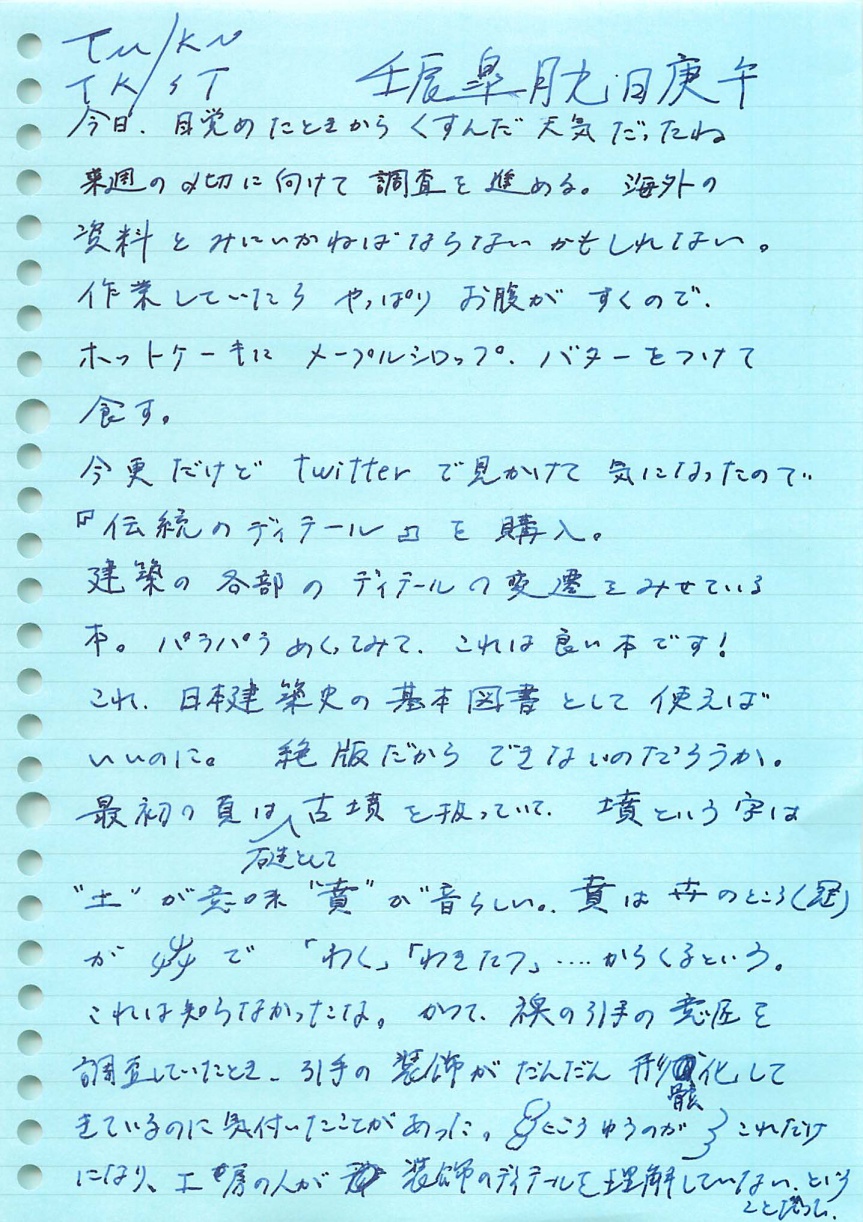 TM/KN
TK/ST
壬辰皐月九日庚午
今日、目覚めたときからくすんだ天気だったね
来週の〆切に向けて調査を進める。海外の
資料とみにいかねばならないかもしれない。
作業していたらやっぱりお腹がすくので、
ホットケーキにメープルシロップ、バターをつけて
食す。
今更だけどtwitterで見かけて気になったので
『伝統のディテール』を購入。
建築の各部のディテールの変遷をみせている
本。パラパラめくってみて、これは良い本です!
これ、日本建築史の基本図書として使えば
いいのに。絶版だからできないのだろうか。
最初の頁は古墳を扱っていて、墳という字は
石造として
"土"が意味"賁"が音らしい。賁は卉のところ(冠)
がで「わく」「わきたつ」....からくるという。
これは知らなかったな。かつて、襖の引手の意匠を
調査していたとき、引手の装飾がだんだん形化して
骸
きているのに気付いたことがあった。こうゆうのがこれだけ
になり、工房の人が装飾のディテールを理解していない、という
ことだった。